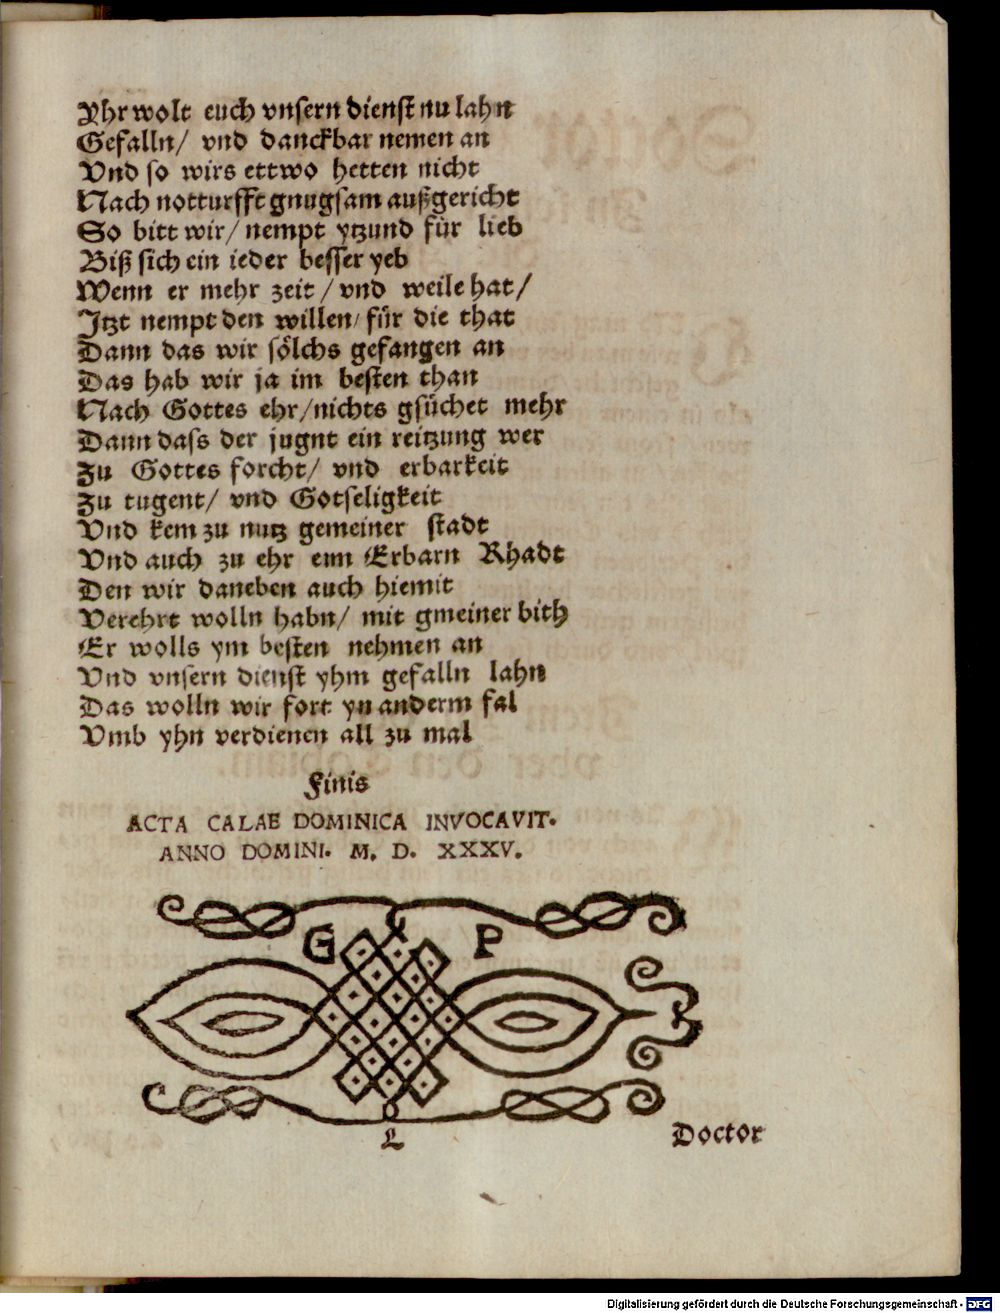 Yhr wolt euch vnsern dienst nu lahn
Gefalln/ vnd danckbar nemen an
Vnd so wirs ettwo hetten nicht
Nach notturfft gnugsam außgericht
So bitt wir/ nempt ytzund für lieb
Biß sich ein ieder besser yeb
Wenn er mehr zeit / vnd weile hat/
Jtzt nempt den willen/ für die that
Dann das wir sölchs gefangen an
Das hab wir ja im besten than
Nach Gottes ehr/nichts gsüchet mehr
Dann dass der jugnt ein reitzung wer
Zu Gottes forcht/ vnd erbarkeit
Zu tugent/ vnd Gotseligkeit
Vnd kem zu nutz gemeiner stadt
Vnd auch zu ehr eim Erbarn Rhadt
Den wir daneben auch hiemit
Verehrt wolln habn/ mit gmeiner bith
Er wolls ym besten nehmen an
Vnd vnsern dienst yhm gefalln lahn
Das wolln wir fort yn anderm fal
Vmb yhn verdienen all zu mal
Finis
ACTA CALAE DOMINICA INVOCAVIT.
ANNO DOMINI. M. D. XXXV.
G P
L
Doctor
Digitalisierung gefördert durch die Deutsche Forschungsgemeinschaft - DFG